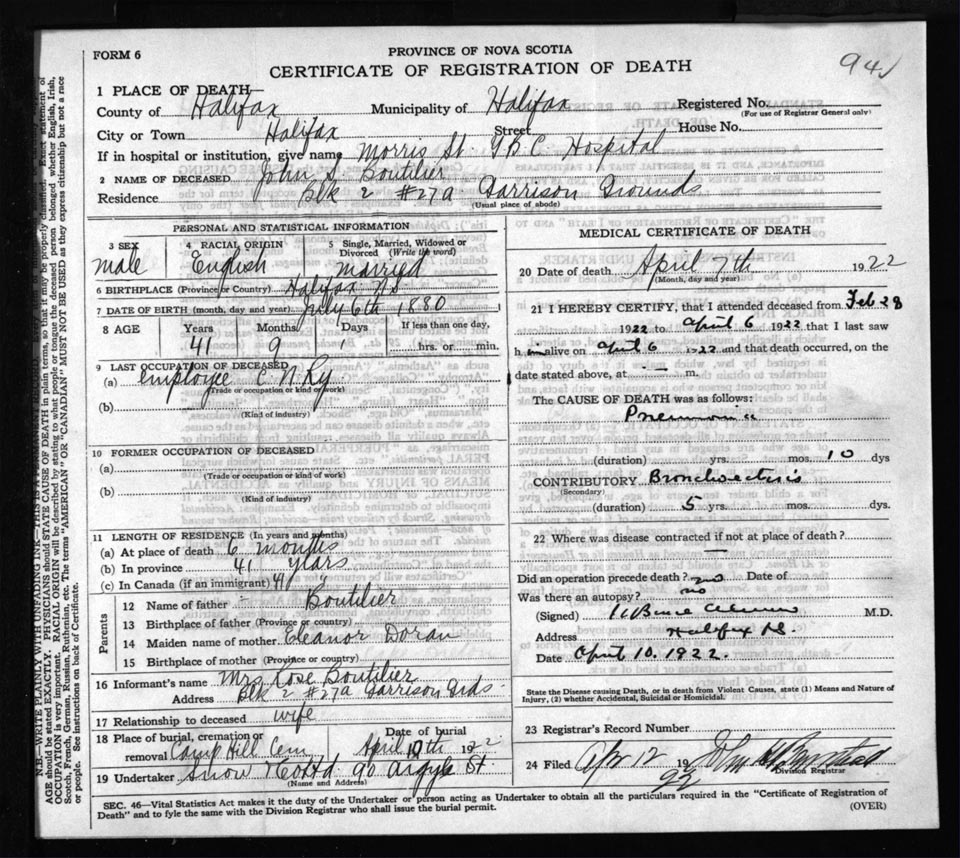 FORM 6
PROVINCE OF NOVA SCOTIA
CERTIFICATE OF REGISTRATION OF DEATH
94
1 PLACE OF DEATH—
County of Halifax Municipality of Halifax Registered No.
(For use of Registrar General only)
City or Town Halifax Street House No.
If in hospital or institution, give name Morris St. T.B.C. Hospital
2 NAME OF DECEASED John S. Boutilier
Residence Blk 2 #27a Garrison Grounds
(Usual place of abode)
PERSONAL AND STATISTICAL INFORMATION
3 SEX male
4 RACIAL ORIGIN English
5 Single, Married, Widowed or Divorced (Write the word) married
6 BIRTHPLACE (Province or Country) Halifax NS
7 DATE OF BIRTH (month, day and year) July 6th 1880
8 AGE Years Months Days If less than one day,
41 9 1 hrs. or min.
9 LAST OCCUPATION OF DECEASED
(a) employee C N Ry.
(Trade or occupation or kind of work)
(b)
(Kind of industry)
10 FORMER OCCUPATION OF DECEASED
(a)
(Trade or occupation or kind of work)
(b)
(Kind of industry)
11 LENGTH OF RESIDENCE (In years and months)
(a) At place of death 6 months
(b) In province 41 years
(c) In Canada (if an immigrant) 41 "
Parents
12 Name of father - Boutilier
13 Birthplace of father (Province or country)
14 Maiden name of mother Eleanor Doran
15 Birthplace of mother (Province or country)
16 Informant's name Mrs Rose Boutilier
Address Blk 2 #27a Garrison Grds.
17 Relationship to deceased wife
18 Place of burial, cremation or removal Camp Hill Cem Date of burial April 10th 1922
19 Undertaker Snow & Co Ltd 90 Argyle St.
(Name and Address)
MEDICAL CERTIFICATE OF DEATH
20 Date of death April 7th 1922
(Month, day and year)
21 I HEREBY CERTIFY, that I attended deceased from Feb 28
1922 to April 6 1922 that I last saw
h im alive on April 6 1922 and that death occurred, on the
date stated above, at —
The CAUSE OF DEATH was as follows:
Pneumonia
(duration) yrs. mos. 10 dys
CONTRIBUTORY Bronchiectasis
(Secondary)
(duration) 5 yrs. mos. dys.
22 Where was disease contracted if not at place of death?
—
Did an operation precede death? no Date of
Was there an autopsy? no
(Signed) M.D.
Address Halifax N.S.
Date April 10. 1922.
State the Disease causing Death, or in death from Violent Causes, state (1) Means and Nature of
Injury, (2) whether Accidental, Suicidal or Homicidal.
23 Registrar's Record Number
24 Filed Apr 12 1922 John
Division Registrar
SEC. 46—Vital Statistics Act makes it the duty of the Undertaker or person acting as Undertaker to obtain all the particulars required in the "Certificate of Registration of
Death" and to fyle the same with the Division Registrar who shall issue the burial permit.
(OVER)